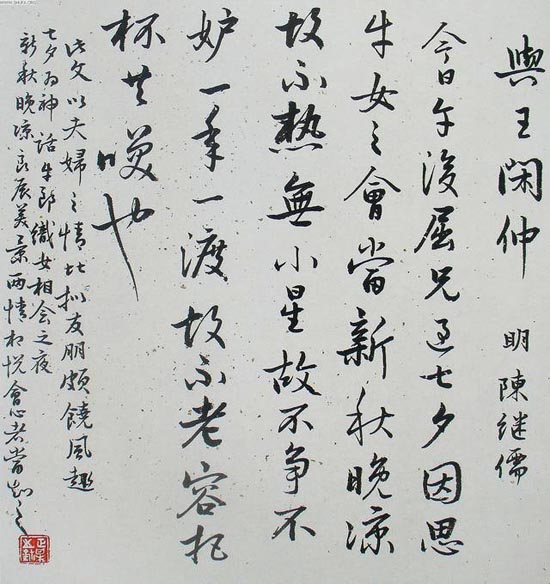 與王閑仲
明 陳继儒
今日午後屈兄過七夕因思
牛女之會當新秋晚凉
故不熱無小星故不爭不
妒一年一渡故不老容把
杯共咲也
此文以夫婦之情比拟友朋頗饒風趣
七夕为神话牛郎織女相会之夜
新秋晚凉良辰美景两情相悦會心者當知之